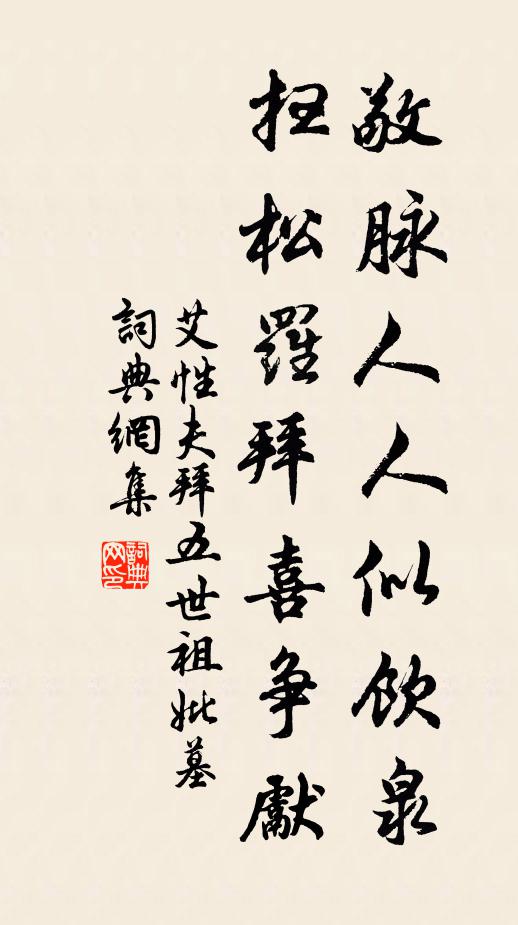 敬脉人人似飲泉
松羅拜喜争獻
艾性夫拜五世祖妣墓
詞典網集
詞典
网印